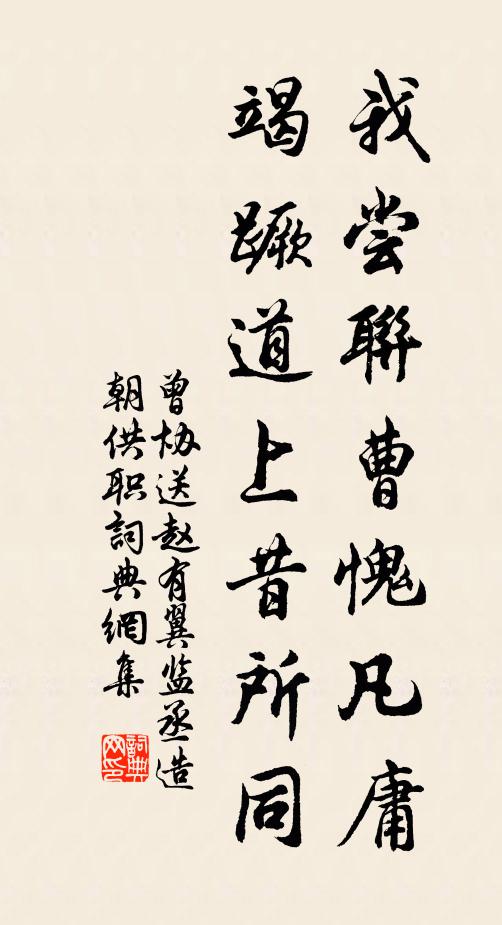 我尝聯曹愧凡庸
竭蹶道上昔所同
曾协送赵有翼监丞造
朝供职詞典網集
詞典网印